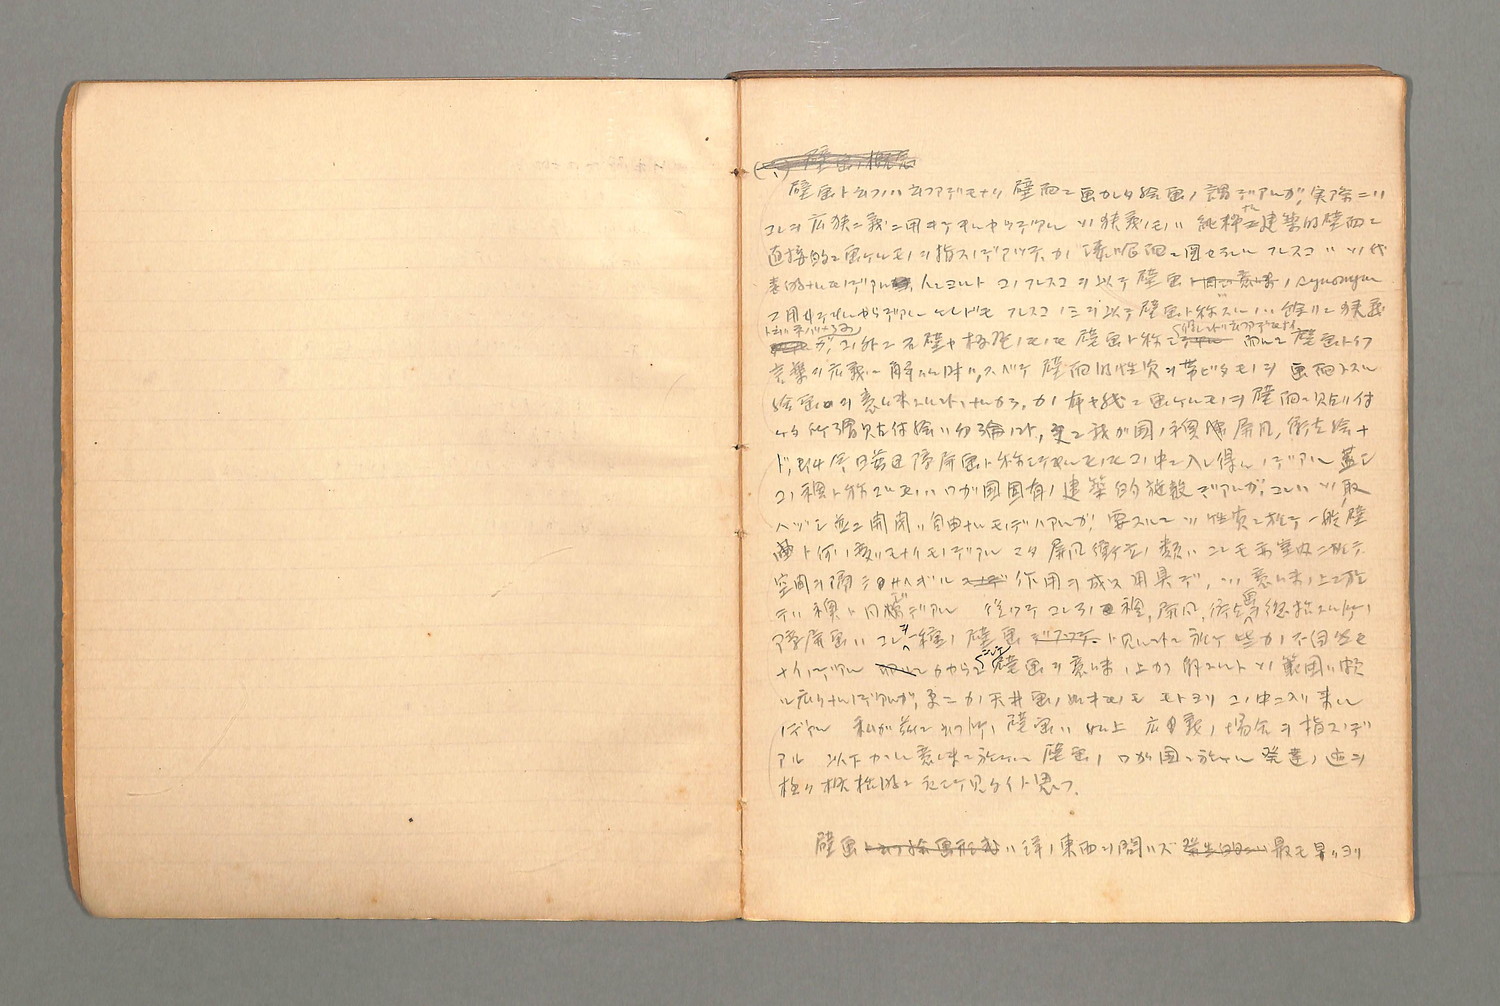 壁画ノ概念
壁画ト云フハ云フマデモナク壁面ニ画カレタ絵画ノ謂デアルガ、実際ニハ
コレヲ広狭二義ニ用ヰテヰルヤウデアル ソノ狭義ノモノハ純粋ナ建築的壁面ニ
直接的ニ画ケルモノヲ指スノデアッテ、カノ漆喰面ニ図セラレルフレスコハソノ代
表的ナルモノデアル。人ニヨルトコノフレスコヲ以テ壁画ト同ジ意味ノ synonym
ニ用ヰテヰルカラデアル ケレドモフレスコノミヲ以テ壁画ト称スルノハ余リニ狭義
デ、コノ外ニ石壁ヤ板壁ノモノモ壁画ト称シ 而シテ壁画ト云フ
言葉ヲ広義ニ解スル時ハ、スベテ壁面的性質ヲ帯ビタモノヲ画面トスル
絵画ヲ意味スルコトトナルカラ、カノ布ヤ紙ニ画ケルモノヲ壁面ニ貼リ付
ケタ所謂貼付絵ハ勿論ノコト、更ニ我ガ国ノ襖障屏風、衝立絵ナ
ド、即チ今日普通障屏画ト称シテヰルモノモコノ中ニ入レ得ルノデアル 蓋シ
コノ襖ト称スルモノハワガ国固有ノ建築的施設デアルガ、コレハソノ取
ハヅシ並ニ開閉ハ自由ナルモノデハアルガ、要スルニソノ性質ニ於テ一般壁
画ト何ノ変リモナイモノデアル マタ屏風衝立ノ類ハコレモ亦室内ニ於テ
空間ヲ隔テ 作用ヲ成ス用具デ、ソノ意味ノ上ニ於
テハ襖ト同様デアル 従ッテコレラノ襖、屏風、衝立画ヲ総括スル所ノ
障屏画ハコレヲ一種ノ壁画 ト見ルコトニ於テ些カノ不自然モ
ナイノデアル カカラシテ壁画ヲ意味ノ上カラ解スルトソノ範囲ハ頗
ル広クナルノデアルガ、更ニカノ天井画ノ如キモノモモトヨリコノ中ニ入リ来ル
ノデアル 私ガ茲ニ云フ所ノ壁画ハ如上広義ノ場合ヲ指スノデ
アル 以下カカル意味ニ於ケル壁画ノワガ国ニ於ケル発達ノ迹ヲ
極ク概括的ニ見テ行キタイト思フ。
壁画ト云フ絵画形式ハ洋ノ東西ヲ問ハズ 発生的ニハ 最モ早クヨリ